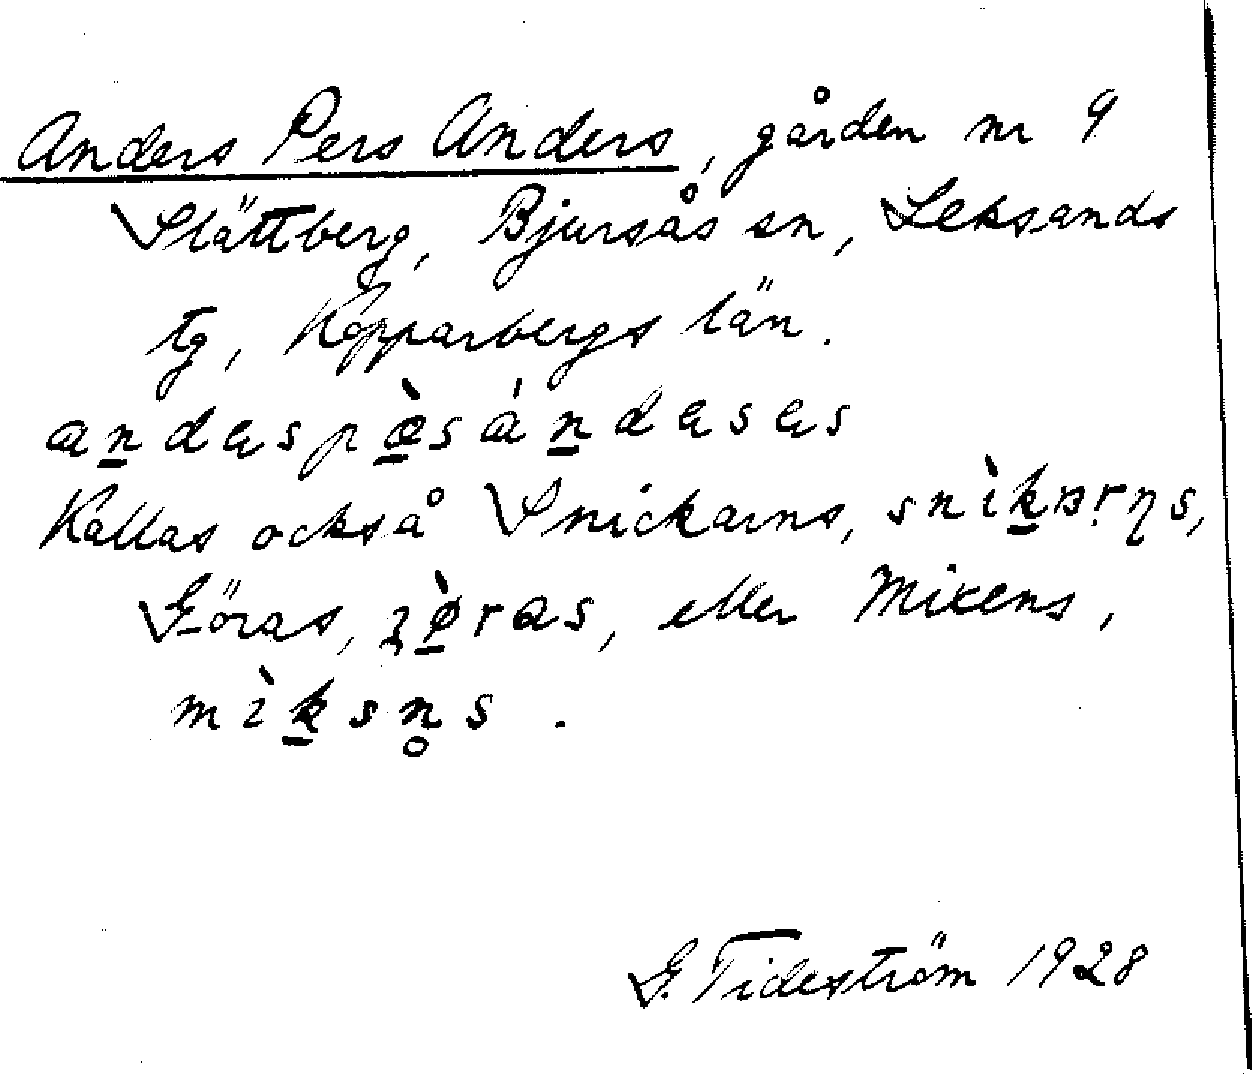 Anders Pers Anders, gården nr 9
Slättberg, Bjursås sn, Leksands
tg, Kopparbergs län.
andæspæ̀sándæsæs
Kallas också Snickarns,
Göras, eller Mixens,
mìksn̥s.
G. Tideström 1928